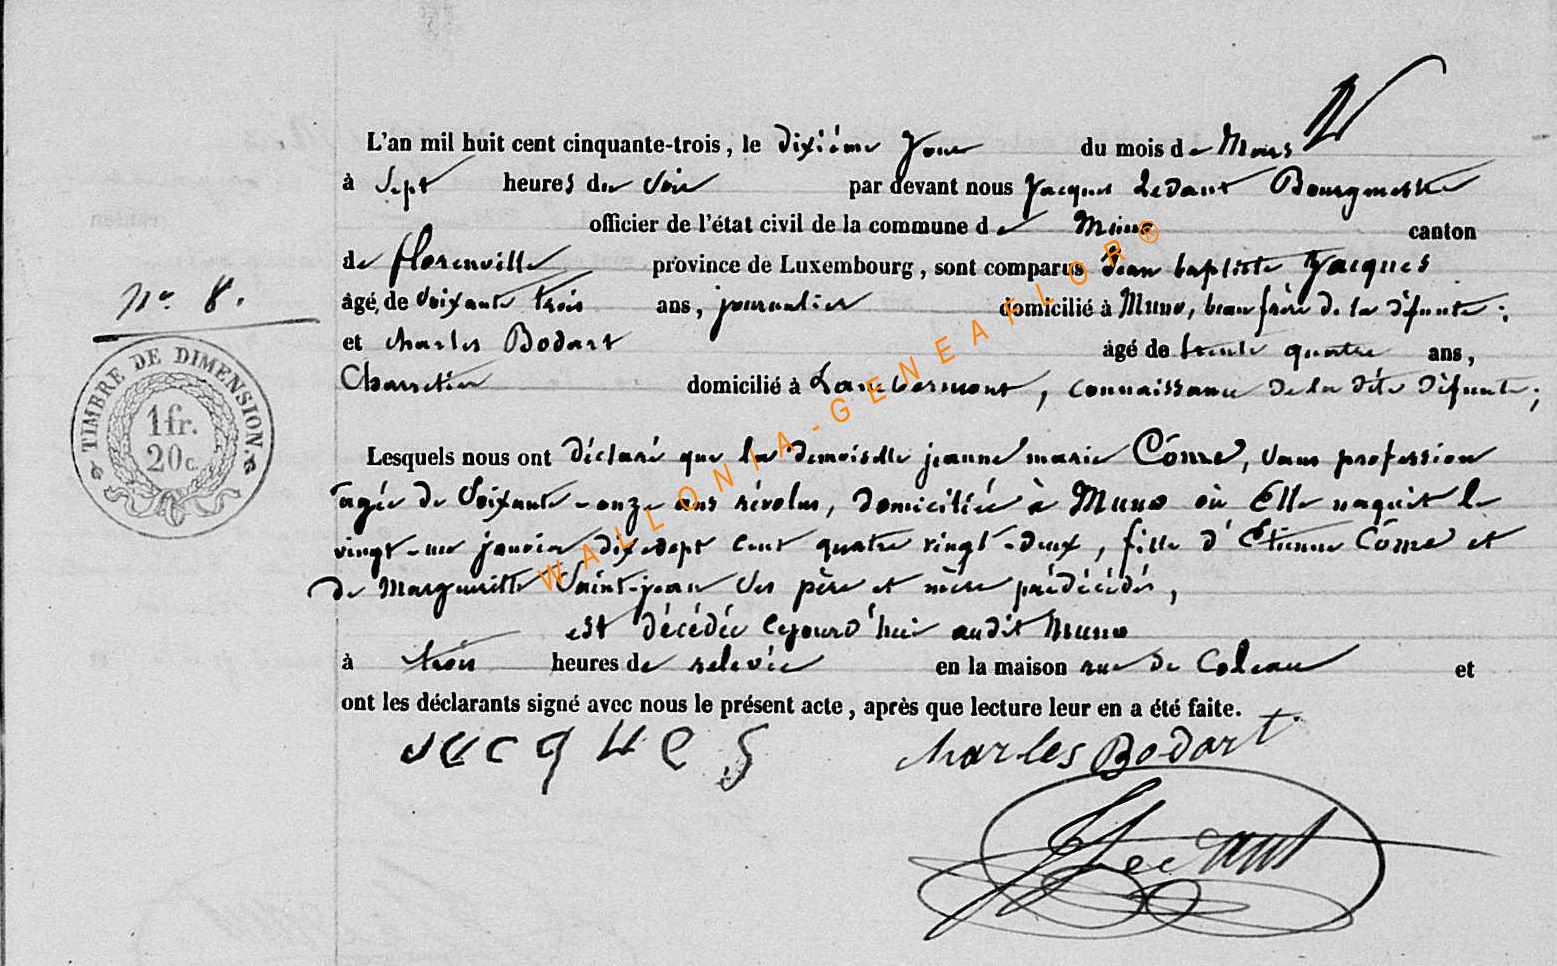 L'an mil huit cent cinquante-trois, le dixième jour du mois de Mars
à sept heures du soir par devant nous Jacques Ledant Bourgmestre
officier de l'état civil de la commune de Muno canton
de florenville province de Luxembourg, sont comparus Jean baptiste Jacques
âgé de soixante trois ans, journalier domicilié à Muno, beau frère de la défunte;
n° 8.
et charles Bodart âgé de trente quatre ans,
Charretier domicilié à Lambermont, connaissance de la dite défunte;
TIMBRE DE DIMENSION.
1 fr.
20 c.
Lesquels nous ont déclaré que la demoiselle jeanne marie Côme, sans profession
agée de Soixante-onze ans révolus, domiciliée à Muno où Elle naquit le
vingt-un janvier dix-sept cent quatre vingt-deux, fille d'Etienne Côme et
de Margueritte Saint-jean ses père et mère prédécédés,
est décédée cejourd'hui audit Muno
à trois heures de relevée en la maison rue de et
ont les déclarants signé avec nous le présent acte, après que lecture leur en a été faite.
Jacques Charles Bodart
J Ledant
WALLONIA-GENEAFLOR®